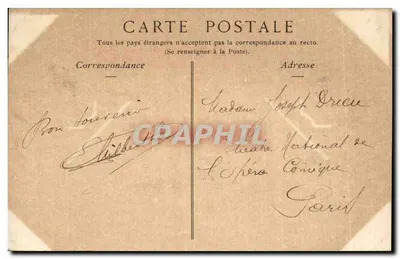 CARTE POSTALE
Tous les pays étrangers n'acceptent pas la correspondance au recto.
(Se renseigner à la Poste).
Correspondance
Adresse
Bon Souvenir
Madame Joseph Drieu
National de
l'Opéra Comique
Paris
CPAPHIL